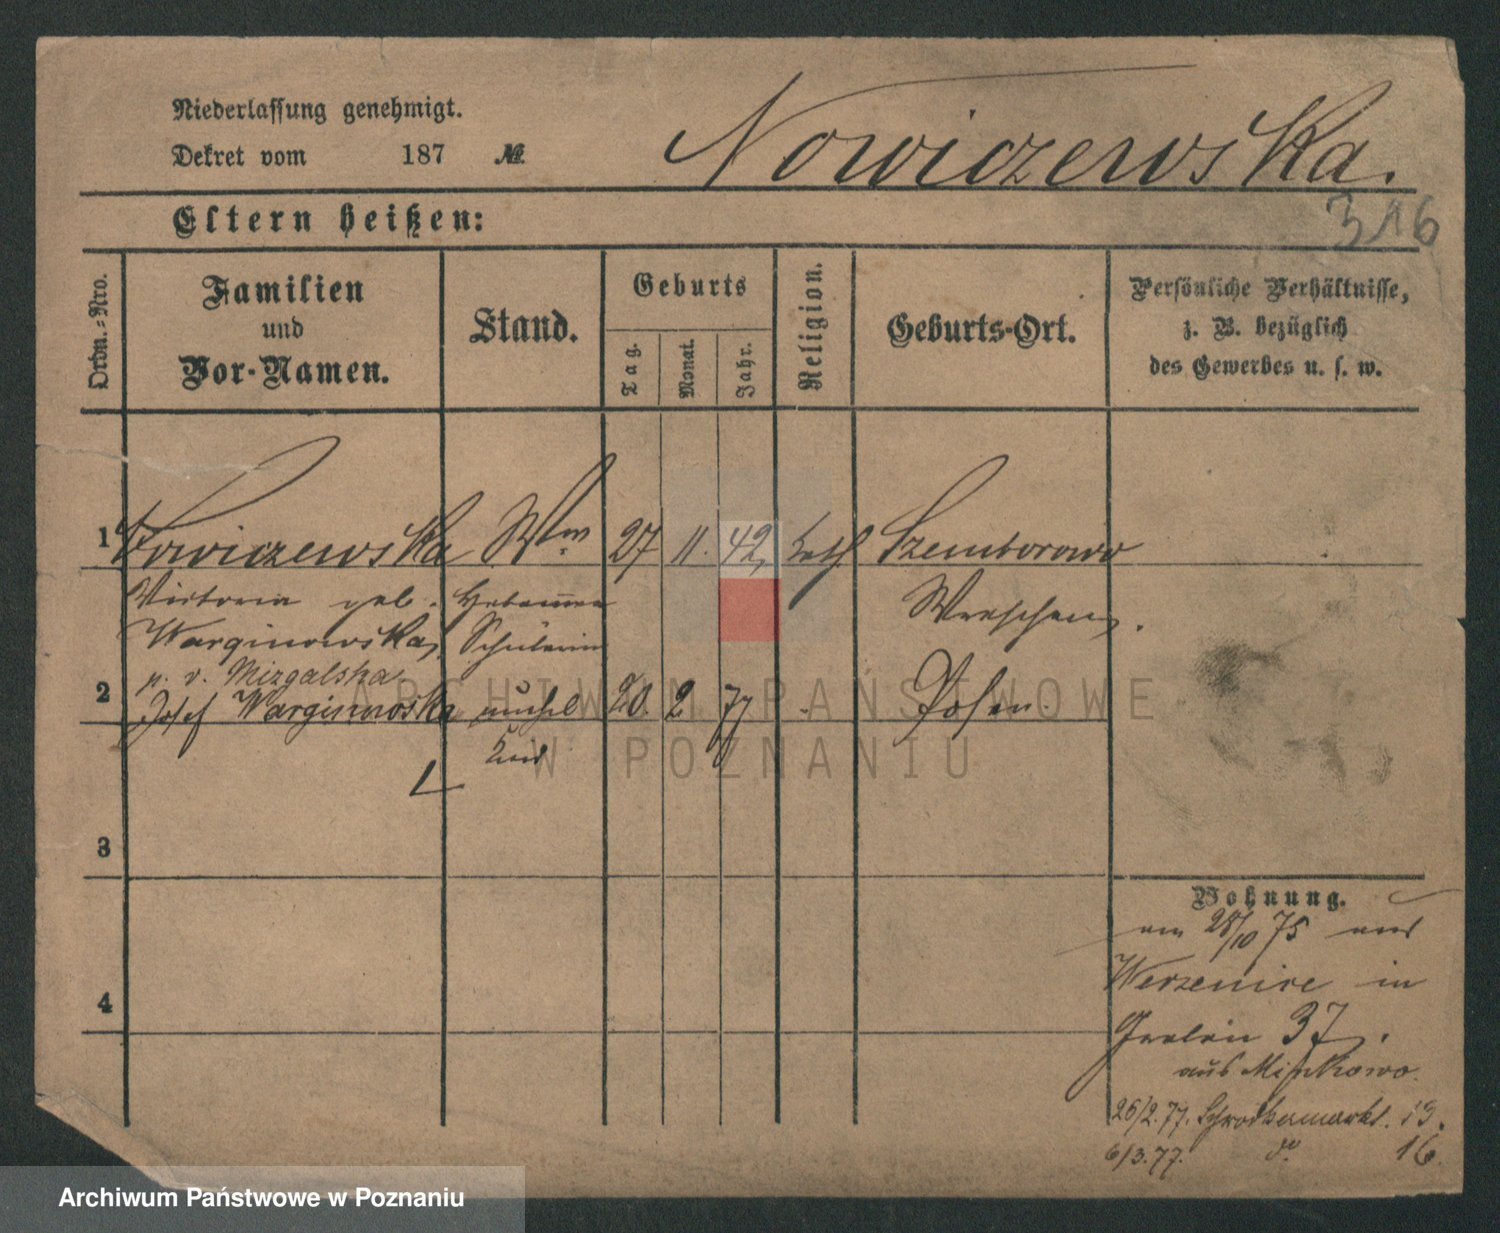 Niederlassung genehmigt.
Dekret vom 187 №
Nowiczewska.
316
Eltern heißen:
Ordn.-Nro.
Familien
und
Vor-Namen.
Stand.
Geburts
Tag.
Monat.
Jahr.
Religion.
Geburts-Ort.
Persönliche Verhältnisse,
z. B. bezüglich
des Gewerbes u. s. w.
1 Nowiczewska Wwe 27 11. 42, kath. Szemborowo
Victoria geb. Hebammen Wreschen.
Warginowska, Schülerin
p. v. Mizgalska
2 Josef Warginowska unehel 20. 2 77 Posen.
Kind
3
4
Wohnung.
am 28/10 75 aus
Werzenice in
Graben 37.
aus Minkowo.
26/2.77. Schrodkamarkt. 19.
6/3.77. do. 16
ARCHIWUM PAŃSTWOWE
W POZNANIU
Archiwum Państwowe w Poznaniu